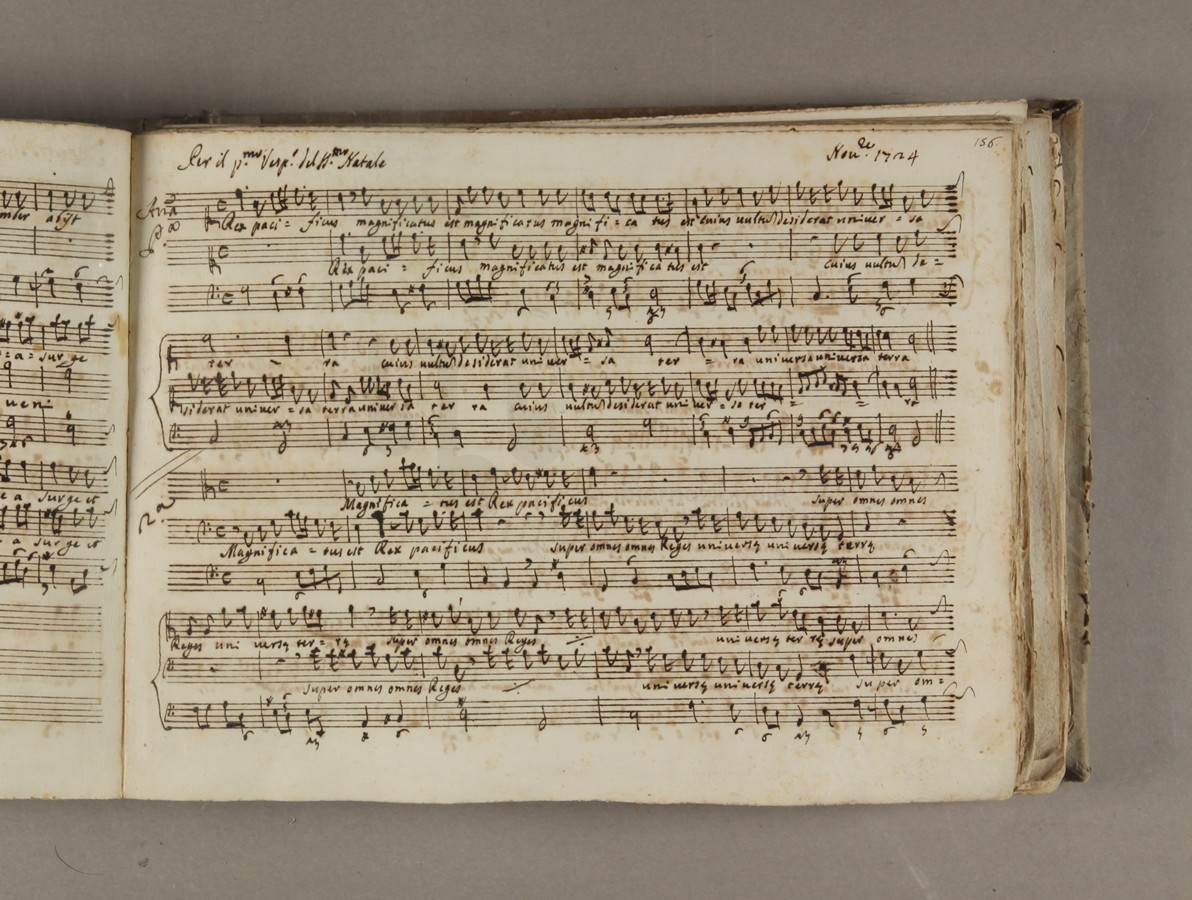 Per il p.mo Vesp.o del SS.mo Natale Nov.re 1724 156
Ana
p.a
Rex paci = ficus magnificatus est magnificatus magnifi = ca tus est cuius vultu desiderat univer = sa
Rex paci = ficus magnificatus est magnificatus est cuius vultu de =
ter - ra cuius vultu desiderat univer = sa ter = ra universa universa terra
siderat univer = sa terra univer sa ter ra cuius vultu desiderat univer = sa ter = = ra
2.a
Magnifica = tus est Rex pacificus super omnes omnes
Magnifica = tus est Rex pacificus super omnes omnes Reges universę universę terrę
Reges uni versę ter = rę super omnes omnes Reges universę ter rę super omnes
super omnes omnes Reges universę universę terrę super om =
mber abijt
= a = surge
veni
e a surge et
a surge et